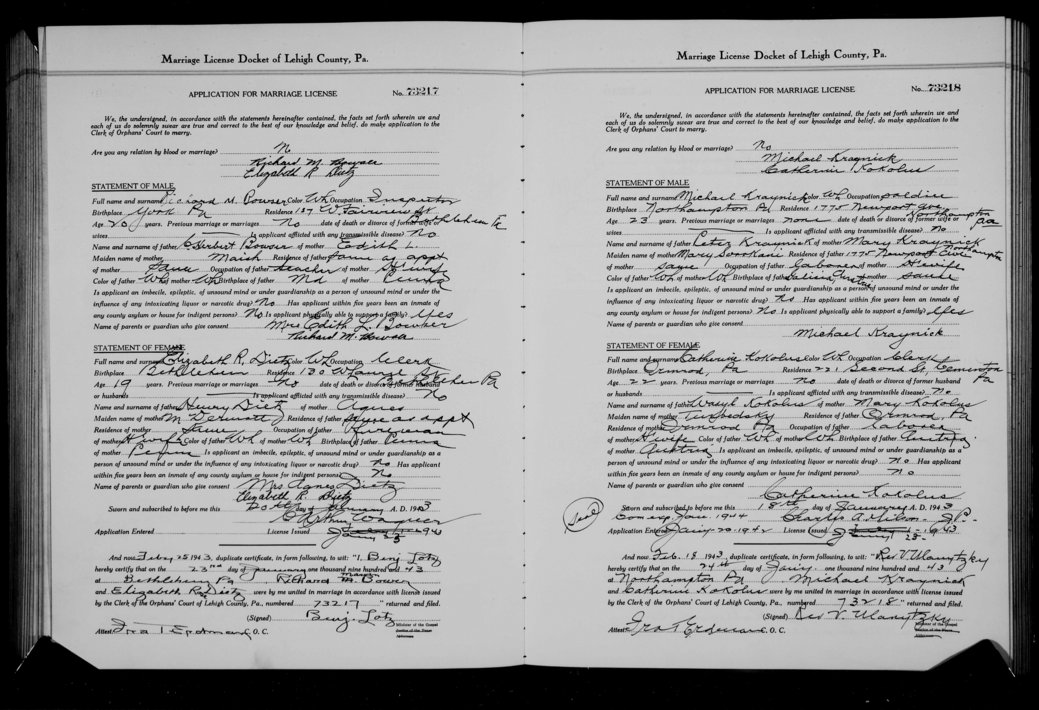 Marriage License Docket of Lehigh County, Pa.
APPLICATION FOR MARRIAGE LICENSE No. 73217
We, the undersigned, in accordance with the statements hereinafter contained, the facts set forth wherein we and
each of us do solemnly swear are true and correct to the best of our knowledge and belief, do make application to the
Clerk of Orphans' Court to marry.
Are you any relation by blood or marriage? No
Richard M. Bowser
Elizabeth R. Dietz
STATEMENT OF MALE
Full name and surname Richard M. Bowser Color Wh Occupation Inspector
Birthplace York Pa Residence 137 W. Fairview St
Age 20 years. Previous marriage or marriages No date of death or divorce of former wife or Bethlehem Pa
wives Is applicant afflicted with any transmissible disease? No
Name and surname of father C. Herbert Bowser of mother Edith L.
Maiden name of mother Maish Residence of father same as appt
of mother same Occupation of father teacher of mother Hwife
Color of father Wh of mother Wh Birthplace of father Md of mother Penna
Is applicant an imbecile, epileptic, of unsound mind or under guardianship as a person of unsound mind or under the
influence of any intoxicating liquor or narcotic drug? No Has applicant within five years been an inmate of
any county asylum or house for indigent persons? No Is applicant physically able to support a family? Yes
Name of parents or guardian who give consent Mrs Edith L. Bowser
Richard M. Bowser
STATEMENT OF FEMALE
Full name and surname Elizabeth R. Dietz Color Wh Occupation Clerk
Birthplace Bethlehem Residence 130 W St
Age 19 years. Previous marriage or marriages No date of death or divorce of former husband Pa
or husbands Is applicant afflicted with any transmissible disease? No
Name and surname of father Henry Dietz of mother Agnes
Maiden name of mother McDermott Residence of father same as appt
Residence of mother same Occupation of father
of mother Hwife Color of father Wh of mother Wh Birthplace of father Penna
of mother Penna Is applicant an imbecile, epileptic, of unsound mind or under guardianship as a
person of unsound mind or under the influence of any intoxicating liquor or narcotic drug? No Has applicant
within five years been an inmate of any county asylum or house for indigent persons? No
Name of parents or guardian who give consent Mrs Agnes Dietz
Elizabeth R. Dietz
Sworn and subscribed to before me this 20th day of January A. D. 1943
Application Entered License Issued Jany 23 194
And now Feby 25 1943, duplicate certificate, in form following, to wit: "I, Benj. Lotz
hereby certify that on the 23rd day of January one thousand nine hundred and 43
at Bethlehem Pa Richard M. Bowser
and Elizabeth R. Dietz were by me united in marriage in accordance with license issued
by the Clerk of the Orphans' Court of Lehigh County, Pa., numbered 73217 " returned and filed.
(Signed) Benj. Lotz
Minister of the Gospel
Justice of the Peace
Alderman
Attest Ira T. Erdman C. O. C.
Marriage License Docket of Lehigh County, Pa.
APPLICATION FOR MARRIAGE LICENSE No. 73218
We, the undersigned, in accordance with the statements hereinafter contained, the facts set forth wherein we and
each of us do solemnly swear are true and correct to the best of our knowledge and belief, do make application to the
Clerk of Orphans' Court to marry.
Are you any relation by blood or marriage? No
Michael Kraynick
Catherine Kokolus
STATEMENT OF MALE
Full name and surname Michael Kraynick Color Wh Occupation soldier
Birthplace Northampton Pa Residence 1775 Newport Ave
Age 23 years. Previous marriage or marriages none date of death or divorce of former wife or Northampton Pa
wives Is applicant afflicted with any transmissible disease? No
Name and surname of father Peter Kraynick of mother Mary Kraynick
Maiden name of mother Mary Residence of father 1775 Newport Ave Northampton
of mother same Occupation of father Laborer of mother Hwife
Color of father Wh of mother Wh Birthplace of father of mother same
Is applicant an imbecile, epileptic, of unsound mind or under guardianship as a person of unsound mind or under the
influence of any intoxicating liquor or narcotic drug? No Has applicant within five years been an inmate of
any county asylum or house for indigent persons? No Is applicant physically able to support a family? Yes
Name of parents or guardian who give consent
Michael Kraynick
STATEMENT OF FEMALE
Full name and surname Catherine Kokolus Color Wh Occupation Clerk
Birthplace Ormrod, Pa Residence 221 Second St, Cementon
Age 22 years. Previous marriage or marriages No date of death or divorce of former husband Pa
or husbands Is applicant afflicted with any transmissible disease? No
Name and surname of father Wasyl Kokolus of mother Mary Kokolus
Maiden name of mother Residence of father Ormrod, Pa
Residence of mother Ormrod Pa Occupation of father Laborer
of mother Hwife Color of father Wh of mother Wh Birthplace of father Austria
of mother Austria Is applicant an imbecile, epileptic, of unsound mind or under guardianship as a
person of unsound mind or under the influence of any intoxicating liquor or narcotic drug? No Has applicant
within five years been an inmate of any county asylum or house for indigent persons? no
Name of parents or guardian who give consent
Catherine Kokolus
Seal
Sworn and subscribed to before me this 18th day of January A. D. 1943
Com exp Jan. 1944 Charles A. Wilson J.P.
Application Entered Jany 20 1942 License Issued Jany 23 1943
And now Feb. 18 1943, duplicate certificate, in form following, to wit: "Rev V. Ulanytzky
hereby certify that on the 24th day of Jany. one thousand nine hundred and 43
at Northampton Pa Michael Kraynick
and Catherine Kokolus were by me united in marriage in accordance with license issued
by the Clerk of the Orphans' Court of Lehigh County, Pa., numbered 73218 " returned and filed.
(Signed) Rev V. Ulanytzky
Minister of the Gospel
Justice of the Peace
Alderman
Attest Ira T. Erdman C. O. C.